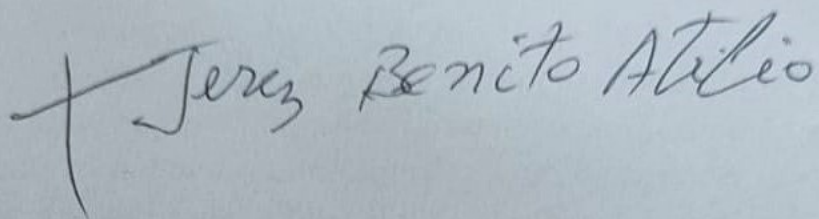 Jerez Benito Atilio